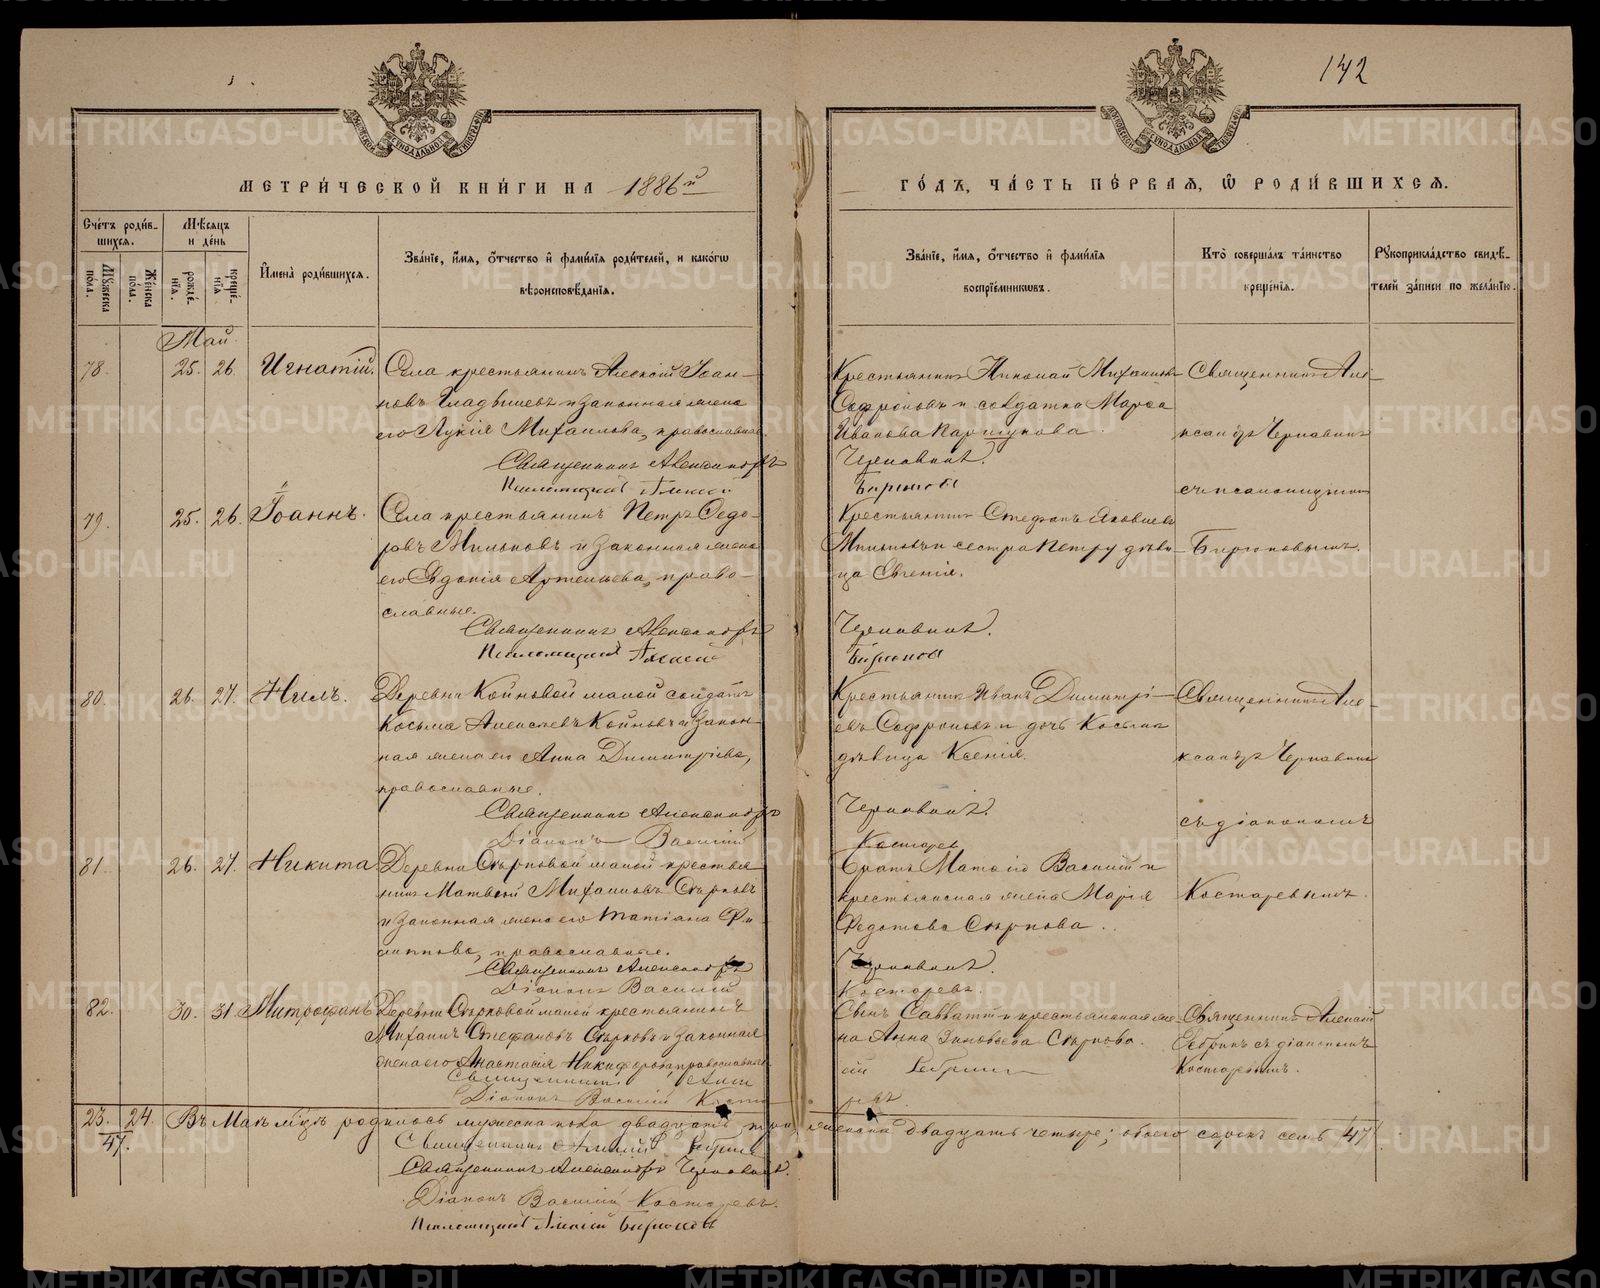 142
МЕТРИ́ЧЕСКОЙ КНИ́ГИ НА 1886й
ГО́ДЪ, ЧА́СТЬ ПЕ́РВАЯ, Ѡ РОДИ́ВШИХСЯ.
Сче́тъ роди́в-
шихся.
Мѣсяцъ
и де́нь
Мꙋжеска
пола.
Же́нска
пола.
рожде́-
нїя.
креще́-
нїя.
И҆мена̀ роди́вшихся.
Зва́нїе, и҆́мя, ѻ҆́тчество и҆ фами́лїя роди́телей, и како́гѡ
вѣроисповѣ́данїя.
Зва́нїе, и҆́мя, ѻ҆́тчество и҆ фами́лїя
воспрїе́мниковъ.
Кто̀ соверша́лъ та́инство
креще́нїя.
Рꙋкоприкла́дство свидѣ́-
телей за́писи по жела́нїю.
Май
78. 25. 26. Игнатій.
Села крестьянинъ Алексій Іоан-
новъ Гладышевъ и законная жена
его Лукія Михаилова, православные.
Священникъ Александръ
Псаломщикъ Алексій
Крестьянинъ Николай Михаиловъ
Софроновъ и солдатка Марѳа
Иванова Паршукова
Чернавинъ.
Бирюковъ
Священникъ Але-
ксандръ Чернавинъ
съ псаломщикомъ
Бирюковымъ.
79. 25. 26. Іоаннъ.
Села крестьянинъ Петръ Ѳедо-
ровъ Мильковъ и законная жена
его Евдокія Артемьева, право-
славные.
Священникъ Александръ
Псаломщикъ Алексій
Крестьянинъ Стефанъ Яковлевъ
Мильковъ и сестра Петру дѣви-
ца Евгенія.
Чернавинъ.
Бирюковъ
80. 26. 27. Нилъ.
Деревни Койновой малой солдатъ
Косьма Алексѣевъ Койновъ и закон-
ная жена его Анна Димитріева,
православные.
Священникъ Александръ
Діаконъ Василій
Крестьянинъ Иванъ Димитрі-
евъ Софроновъ и дочь Косьмы
дѣвица Ксенія.
Чернавинъ.
Костаревъ
Священникъ Але-
ксандръ Чернавинъ
съ діакономъ
Костаревымъ.
81. 26. 27. Никита.
Деревни Сѣрковой малой крестья-
нинъ Матвѣй Михаиловъ Сѣрковъ
и законная жена его Татіана Фи-
липпова, православные.
Священникъ Александръ
Діаконъ Василій
Братъ Матвѣю Василій и
крестьянская жена Марія
Ѳедотова Сѣркова.
Чернавинъ.
Костаревъ.
82. 30. 31. Митрофанъ
Деревни Сѣрковой малой крестьянинъ
Михаилъ Стефановъ Сѣрковъ и законная
жена его Анастасія Никифорова, православные
Священникъ Алекс
Діаконъ Василій Коста
Сынъ Савватій и крестьянская же-
на Анна Зиновьева Сѣркова.
ій Ребринъ
ревъ.
Священникъ Алексій
Ребринъ съ діакономъ
Костаревымъ.
23. 24. Въ Маѣ мѣсяцѣ родилось мужеска пола двадцать три, женска двадцать четыре; обоего сорокъ семь 47
47.
Священникъ Алексій Ребринъ
Священникъ Александръ Чернавинъ.
Діаконъ Василій Костаревъ.
Псаломщикъ Алексій Бирюковъ
METRIKI.GASO-URAL.RU